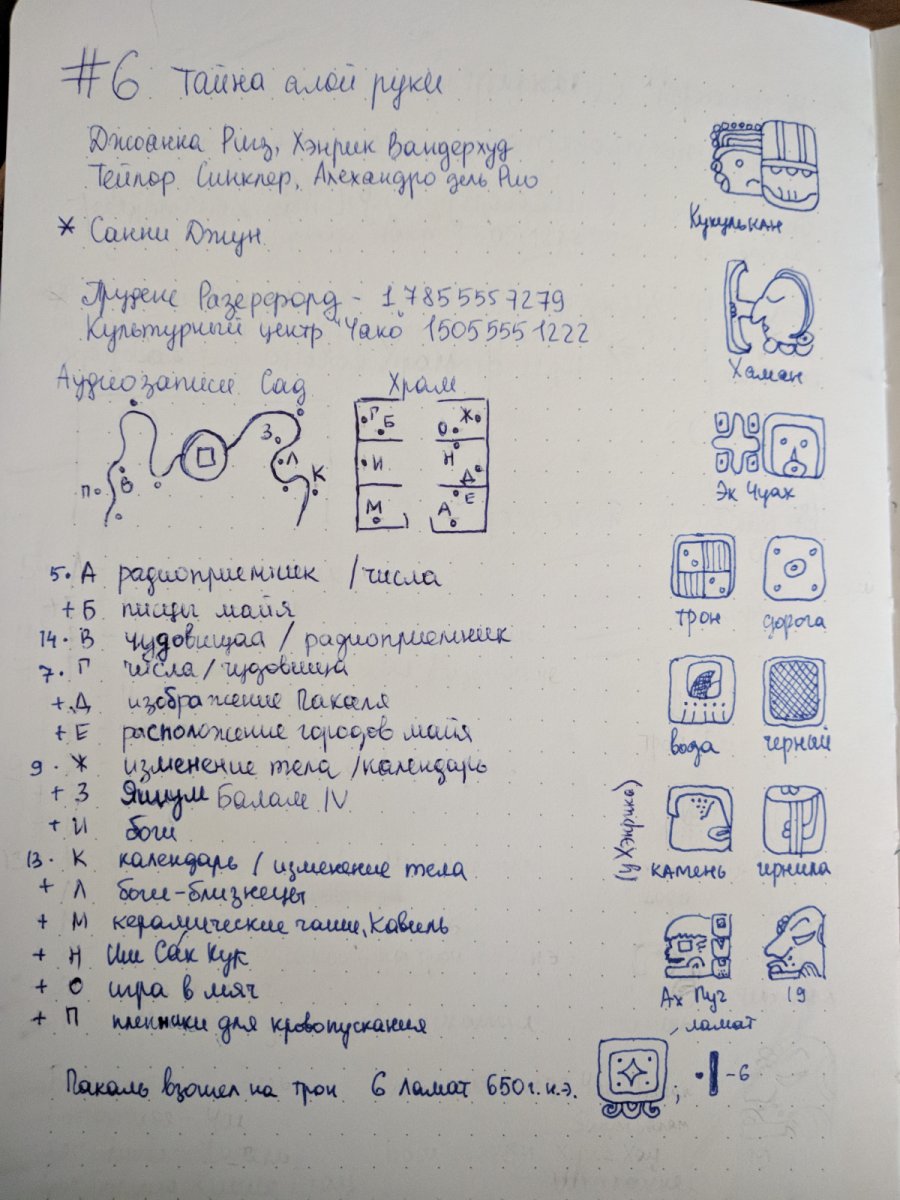 #6 Тайна алой руки
Джоанна Риз, Хэнрик Вандерхуд
Тейлор Синклер, Алехандро дель Рио
* Санни Джун
Пруденс Разерфорд - 17855557279
Культурный центр "Чако" 15055551222
Аудиозаписи Сад Храм
П В З Л К
Г Б О Ж
И Н Д
М А Е
5. А радиоприемник /числа
+ Б писцы майя
14. В чудовищаа / радиоприемник
7. Г числа / чудовища
+ Д изображение Пакаля
+ Е расположение городов майя
9. Ж изменение тела /календарь
+ З Яшум Балам IV
+ И боги
13. К календарь / изменение тела
+ Л боги-близнецы
+ М керамические чаши, Кавиль
+ Н Иш Сак Кук
+ О игра в мяч
+ П пленники для кровопускания
Пакаль взошел на трон 6 Ламат 650г. н.э.
, ламат
; - 6
Кукулькан
Хаман
Эк Чуах
трон дорога
вода черный
(у Хэнрика)
камень чернила
Ах Пуч 19